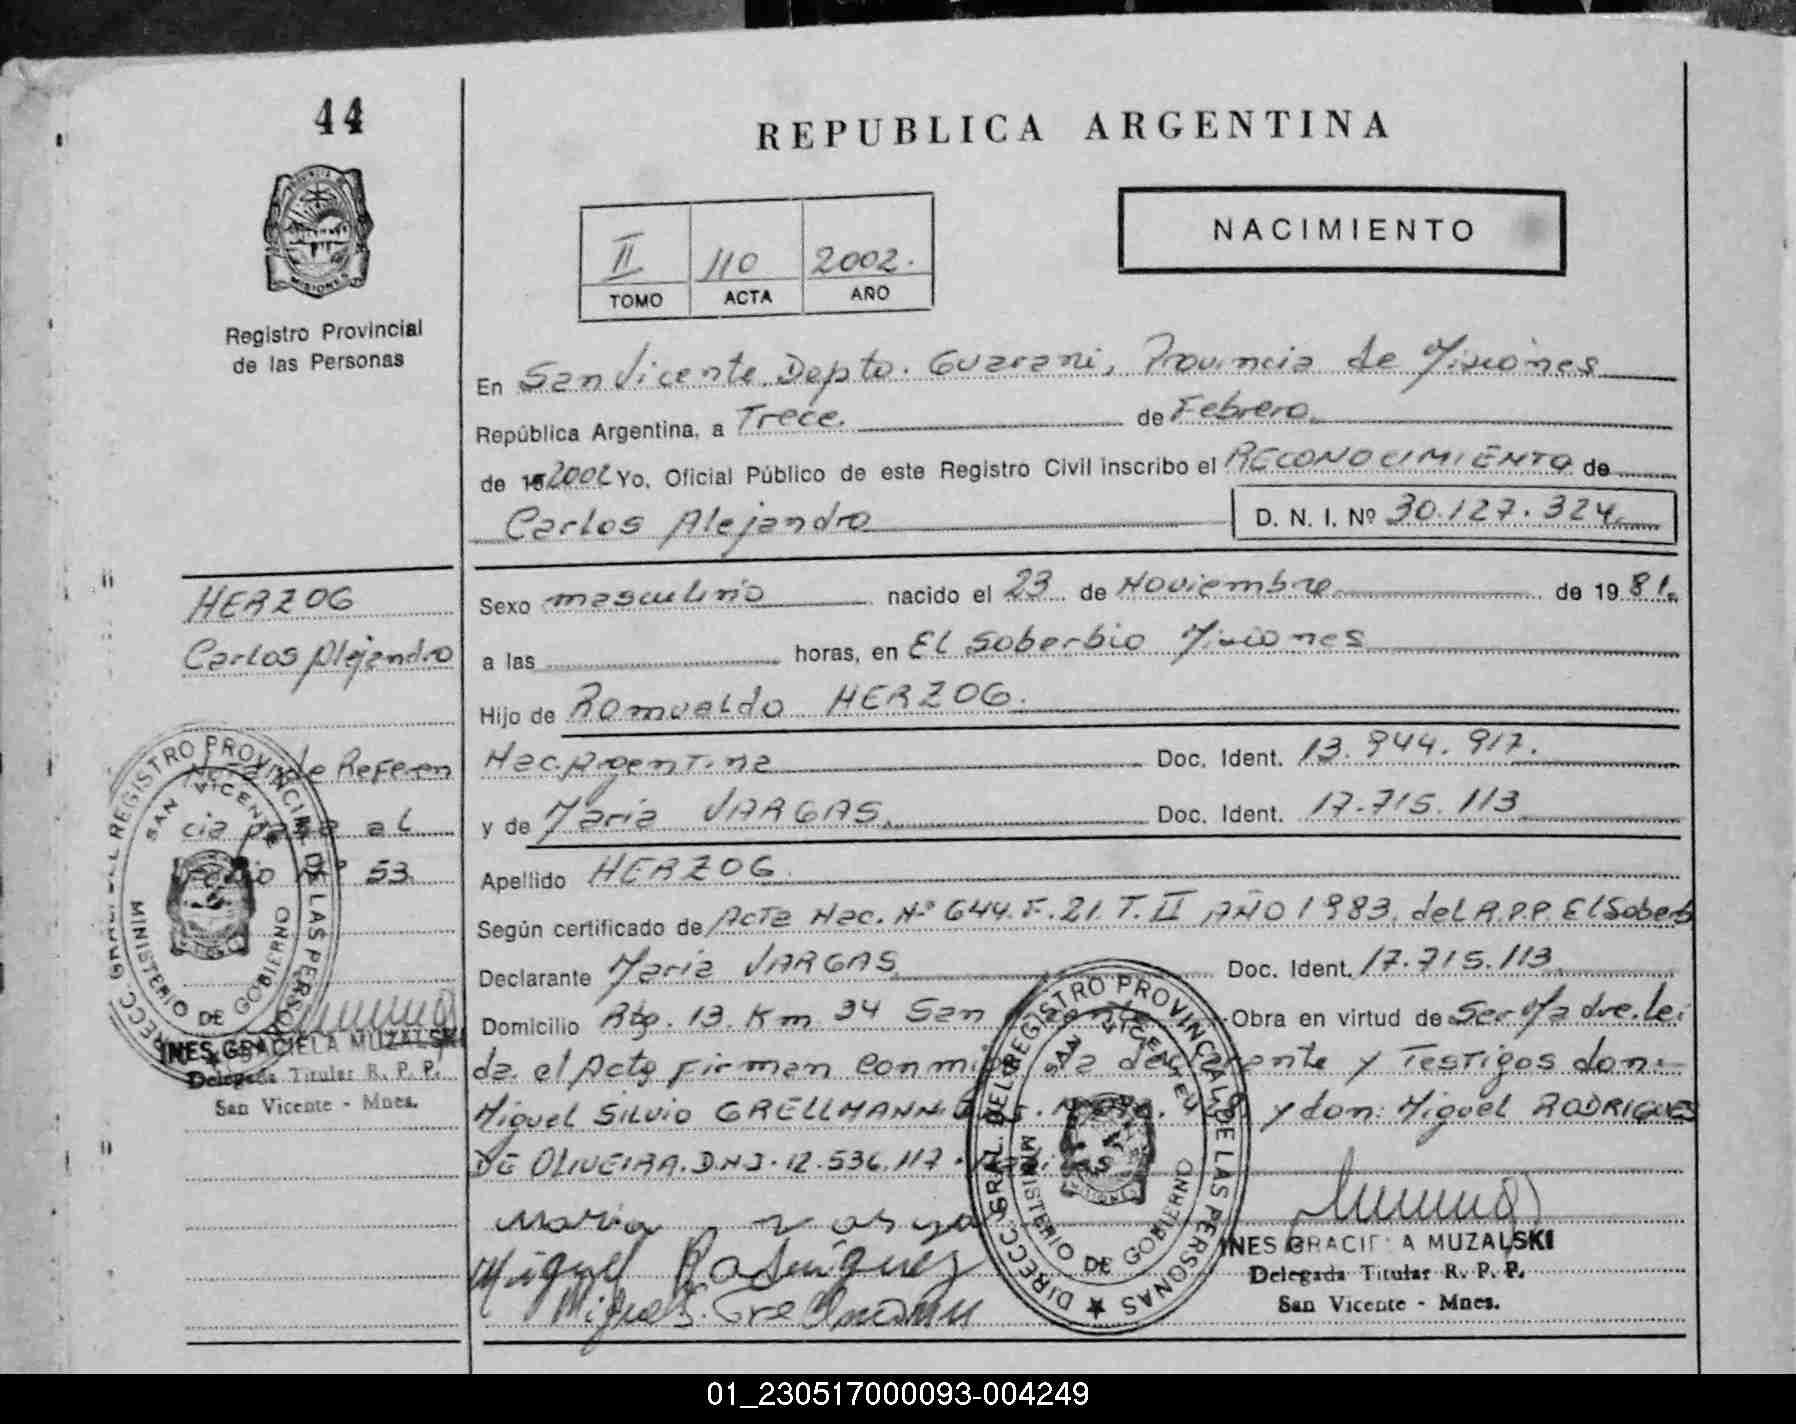 44
REPUBLICA ARGENTINA
PROVINCIA DE MISIONES
Registro Provincial
de las Personas
II 110 2002.
TOMO ACTA AÑO
NACIMIENTO
En San Vicente Depto. Guarani, Provincia de Misiones
República Argentina, a Trece. de Febrero
de 19 2002 Yo, Oficial Público de este Registro Civil inscribo el RECONOCIMIENTO de
Carlos Alejandro D. N. I. Nº 30.127.324
HERZOG
Carlos Alejandro
Nota de Referen
cia pasa al
Folio Nº 53
Sexo masculino nacido el 23 de Noviembre de 1981.
a las horas, en El Soberbio Misiones
Hijo de Romualdo HERZOG.
Nac. Argentina Doc. Ident. 13.944.917.
y de Maria VARGAS Doc. Ident. 17.715.113
Apellido HERZOG
Según certificado de Acta Nac. Nº 644. F. 21. T. II AÑO 1983. del R.P.P. El Soberb
Declarante Maria VARGAS Doc. Ident. 17.715.113
Domicilio Rta. 13 Km 34 San Obra en virtud de Ser Madre. Lei
da el Acta Firman Conmigo la y Testigos don:
Miguel Silvio GRELLMANN y don: Miguel RODRIGUES
DE OLIVEIRA. D.N.I. 12.536.117.
Maria Vargas
Miguel Rodriguez
Miguel S. Grellmann
DIRECC. GRAL. DEL REGISTRO PROVINCIAL DE LAS PERSONAS
SAN VICENTE
MINISTERIO DE GOBIERNO
INES GRACIELA MUZALSKI
Delegada Titular R. P. P.
San Vicente - Mnes.
DIRECC. GRAL. DEL REGISTRO PROVINCIAL DE LAS PERSONAS
SAN VICENTE
MISIONES
MINISTERIO DE GOBIERNO
INES GRACIELA MUZALSKI
Delegada Titular R. P. P.
San Vicente - Mnes.
01_230517000093-004249